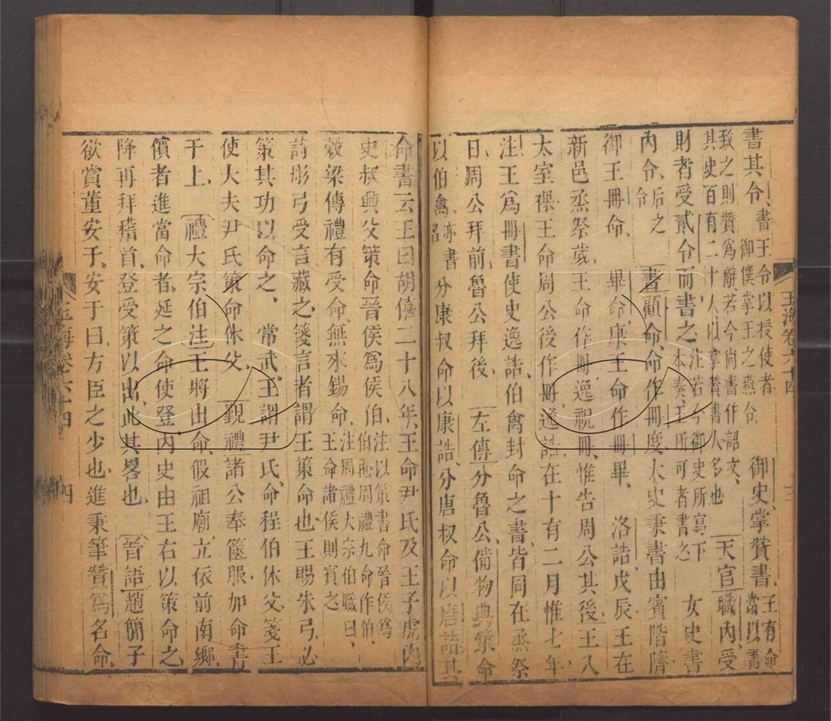 玉海卷六十四 三
書其令書王令以授使者御僕掌王之燕令 御史掌贊書王有命當以書
致之則贊爲辭若今尚書作詔文
其史百有二十人以掌贊書人多也 天官職內受
財者受貳令而書之注若今御史所寫下本奏王所可者書之 女史書
內令后之令 書顧命命作冊度太史秉書由賓階隮
御王冊命 畢命康王命作冊畢 洛誥戊辰王在
新邑烝祭歲王命作冊逸祝冊惟告周公其後王入
太室祼王命周公後作冊逸誥在十有二月惟七年
注王爲冊書使史逸誥伯禽封命之書皆同在烝祭
日周公拜前魯公拜後 左傳分魯公備物典策命
以伯禽亦書名分康叔命以康誥分唐叔命以唐誥其
命書云王曰胡 僖二十八年王命尹氏及王子虎內
史叔興父策命晉侯爲侯伯注以策書命晉侯爲伯也周禮九命作伯
穀梁傳禮有受命無來錫命注周禮大宗伯職曰王命諸侯則儐之
詩彤弓受言藏之箋言者謂王策命也王賜朱弓必
策其功以命之 常武王謂尹氏命程伯休父箋王
使大夫尹氏策命休父 覲禮諸公奉篋服加命書
于上 禮大宗伯注王將出命假祖廟立依前南鄉
儐者進當命者延之命使登內史由王右以策命之
降再拜稽首登受策以出此其畧也 晉語趙簡子
欲賞董安于安于曰方臣之少也進秉筆贊爲名命
玉海卷六十四 四